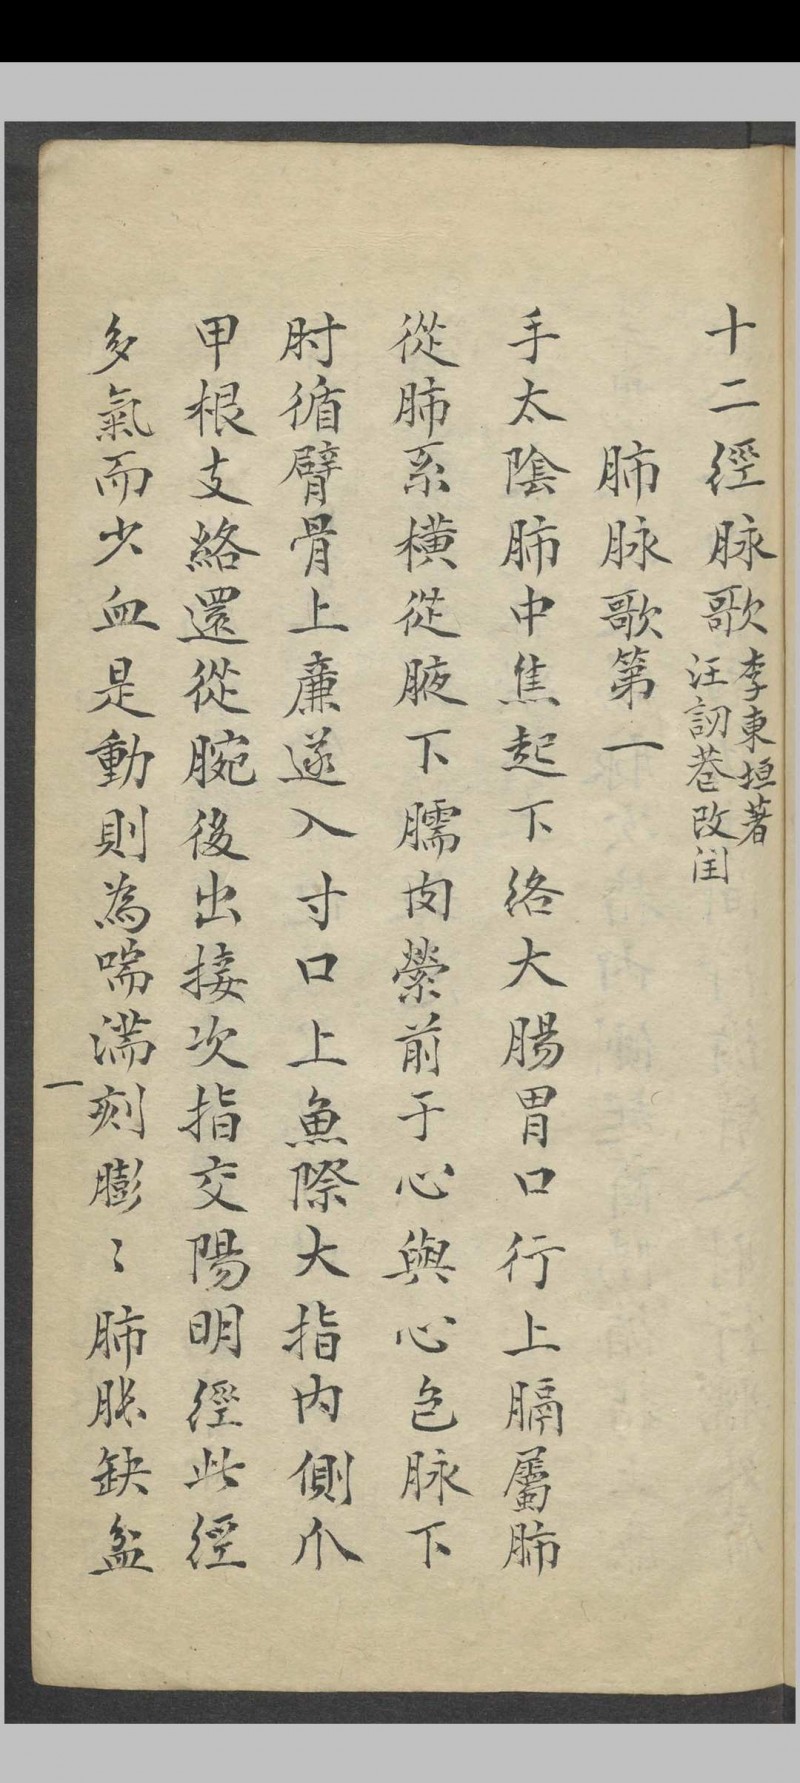 十二經脉歌 李東垣著
汪訒菴改闰
肺脉歌第一
手太陰肺中焦起下络大腸胃口行上膈屬肺
從肺系橫從腋下臑內縈前于心與心色脉下
肘循臂骨上廉遂入寸口上魚際大指內側爪
甲根支絡還從腕後出接次指交陽明徑此徑
多氣而少血是動則為喘滿刻膨〻肺胀缺盆
一